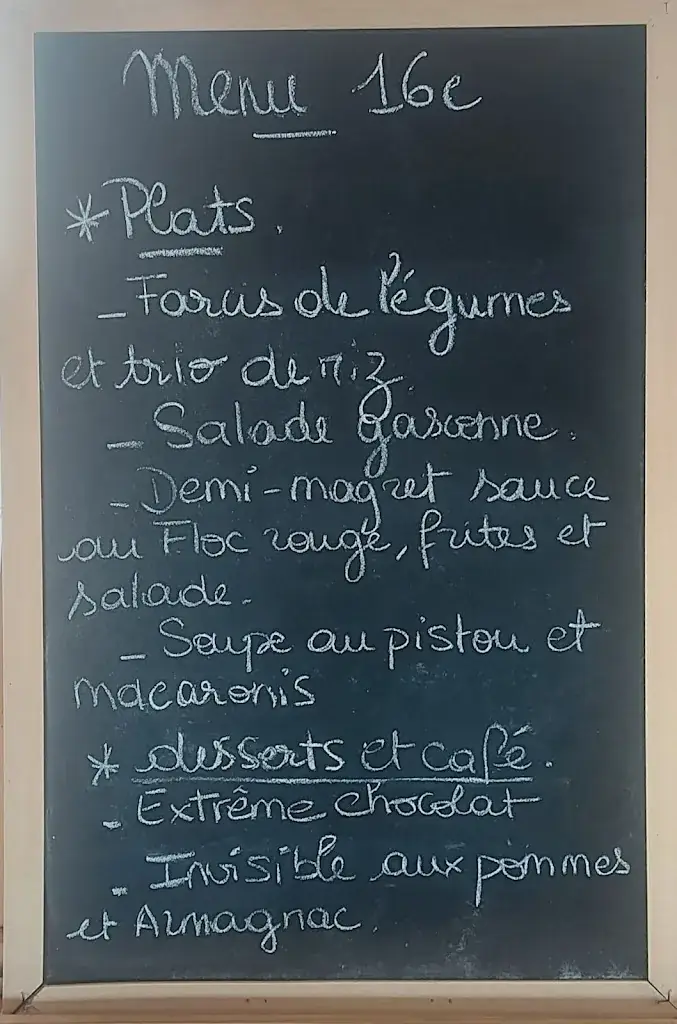 Menu 16€
* Plats.
- Farcis de légumes
et trio de riz
- Salade gasconne.
- Demi-magret sauce
au Floc rouge, frites et
salade.
- Soupe au pistou et
macaronis
* desserts et café.
- Extrême chocolat
- Invisible aux pommes
et Armagnac.